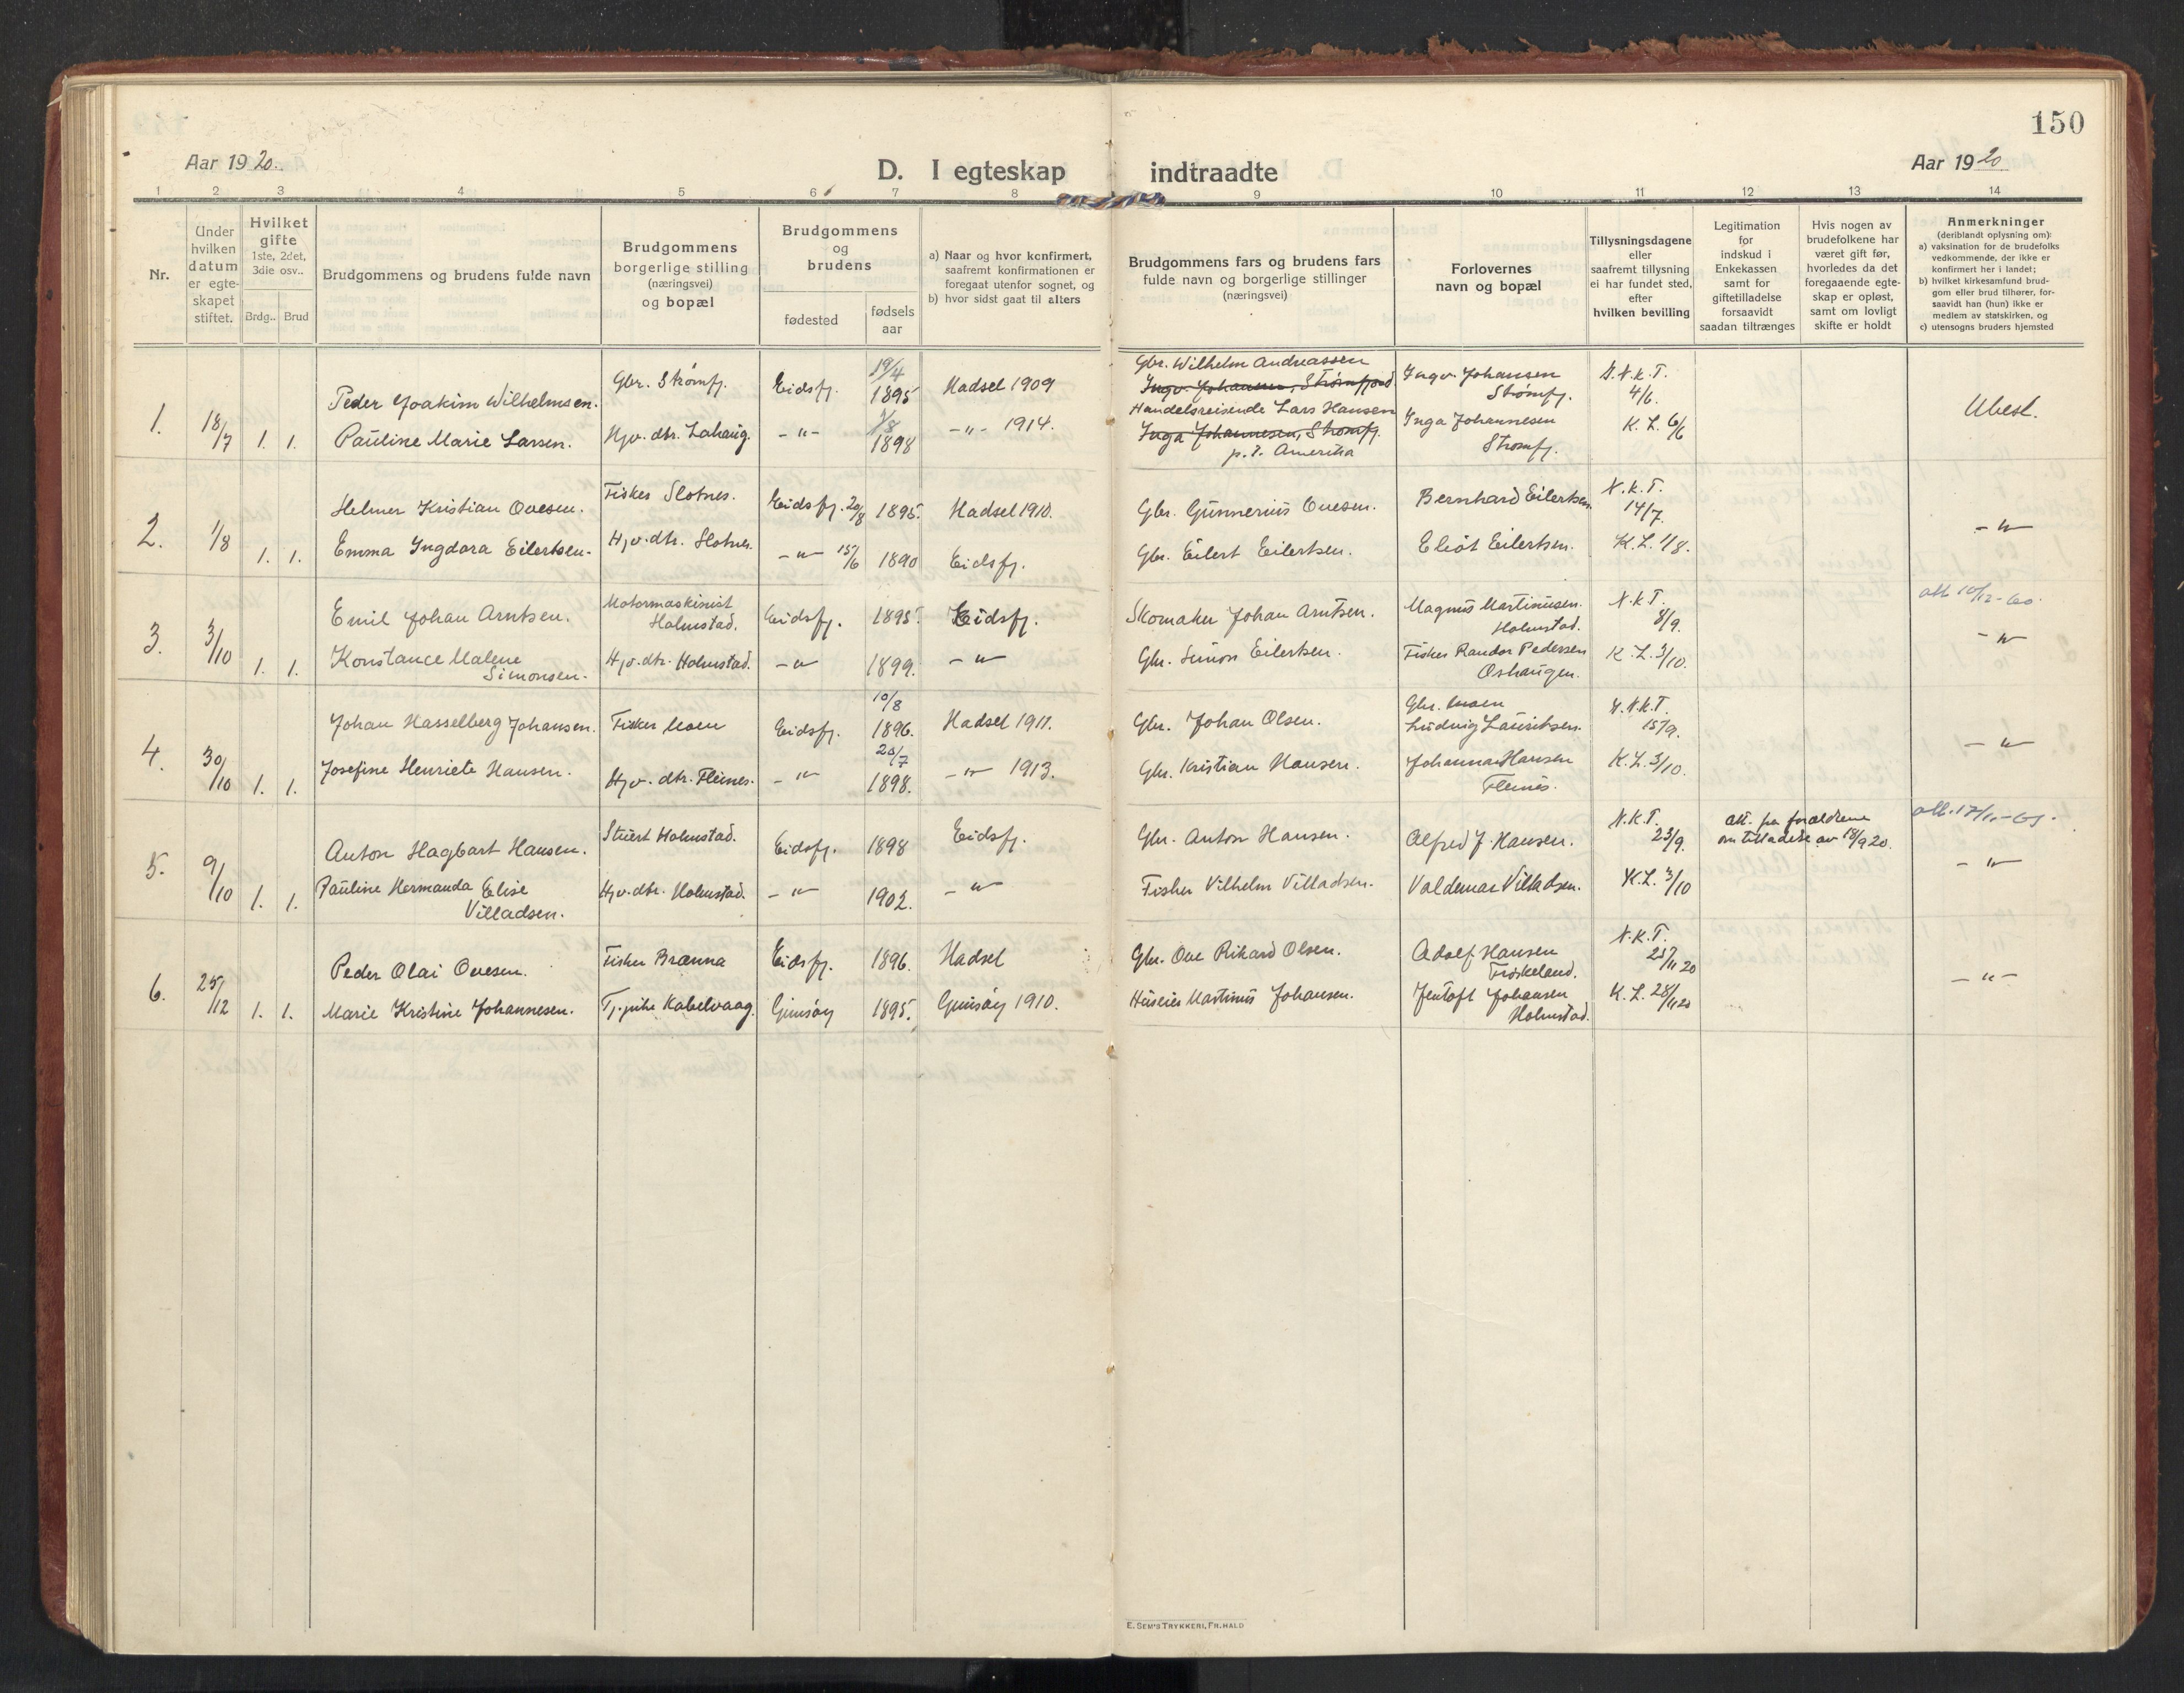 150
Aar 1920.
D. I egteskap indtraadte
Aar 1920
1 2 3 4 5 6 7 8 9 10 11 12 13 14
Nr.
Under hvilken datum er egte-skapet stiftet.
Hvilket gifte 1ste, 2det, 3die osv..
Brdg.. Brud
Brudgommens og brudens fulde navn
Brudgommens borgerlige stilling (næringsvei) og bopæl
Brudgommens og brudens
fødested
fødsels aar
a) Naar og hvor konfirmert, saafremt konfirmationen er foregaat utenfor sognet, og
b) hvor sidst gaat til alters
Brudgommens fars og brudens fars fulde navn og borgerlige stillinger (næringsvei)
Forlovernes navn og bopæl
Tillysningsdagene eller saafremt tillysning ei har fundet sted, efter hvilken bevilling
Legitimation for indskud i Enkekassen samt for giftetilladelse forsaavidt saadan tiltrænges
Hvis nogen av brudefolkene har været gift før, hvorledes da det foregaaende egte-skap er opløst, samt om lovligt skifte er holdt
Anmerkninger (deriblandt oplysning om):
a) vaksination for de brudefolks vedkommende, der ikke er konfirmert her i landet;
b) hvilket kirkesamfund brud-gom eller brud tilhører, for-saavidt han (hun) ikke er medlem av statskirken, og
c) utensogns bruders hjemsted
1. 18/7 1. 1.
Peder Joakim Wilhelmsen. Gbr. Strømfj. Eidsfj. 19/4 1895 Hadsel 1909
Gbr. Wilhelm Andreassen
Ingv. Johansen, Strømfjord
Ingv. Johansen Strømfj.
D.N.K.T. 4/6.
Pauline Marie Larsen. Hjv. dtr. Lahaug. -"- 1/8 1898 -"- 1914.
Handelsreisende Lars Hansen
Inga Johannesen, Strømfj.
p.t. Amerika
Inga Johannesen Strømfj.
K.L. 6/6
Ubest.
2. 1/8 1. 1.
Helmer Kristian Ovesen. Fisker Slotnes. Eidsfj. 20/8 1895. Hadsel 1910.
Gbr. Gunnerius Ovesen. Bernhard Eilertsen. N.K.T. 14/7.
Emma Ingdora Eilertsen. Hjv. dtr. Slotnes. -"- 15/6 1890 Eidsfj.
Gbr. Eilert Eilertsen. Eliot Eilertsen. K.L. 1/8. -"-
3. 3/10 1. 1.
Emil Johan Arntsen. Motormaskinist Holmstad. Eidsfj. 1895. Eidsfj.
Skomaker Johan Arntsen. Magnus Martinusen. Holmstad. N.K.T. 8/9. att 10/12-60.
Konstance Malene Simonsen. Hjv. dtr. Holmstad. -"- 1899. -"-
Gbr. Simon Eilertsen. Fisker Randor Pedersen Oshaugen. K.L. 3/10. -"-
4. 30/10 1. 1.
Johan Hasselberg Johansen. Fisker Moen Eidsfj. 10/8 1896. Hadsel 1911.
Gbr. Johan Olsen. Gbr. Moen Ludvig Lauritsen. D.N.K.T. 15/9.
Josefine Henriete Hansen. Hjv. dtr. Fleines. -"- 20/7 1898. -"- 1913.
Gbr. Kristian Hansen. Johannes Hansen Fleines. K.L. 3/10. -"-
5. 9/10 1. 1.
Anton Hagbart Hansen. Stuert Holmstad. Eidsfj. 1898 Eidsfj.
Gbr. Anton Hansen. Alfred J. Hansen. N.K.T. 23/9. att. fra forældrene om tilladelse av 18/9 20.
Pauline Hermanda Elise Villadsen. Hjv. dtr. Holmstad. -"- 1902. -"-
Fisker Vilhelm Villadsen. Valdemar Villadsen. K.L. 3/10 -"-
6. 25/12 1. 1.
Peder Olai Ovesen. Fisker Brænna Eidsfj. 1896. Hadsel
Gbr. Ove Rikard Olsen. Adolf Hansen Friskeland. N.K.T. 25/11 20
Marie Kristine Johannesen. Tj.pike Kabelvaag. Gimsøy 1895. Gimsøy 1910.
Huseier Martinus Johansen. Jentoft Johansen Holmstad. K.L. 28/11 20 -"-
E. SEM'S TRYKKERI, FR.HALD